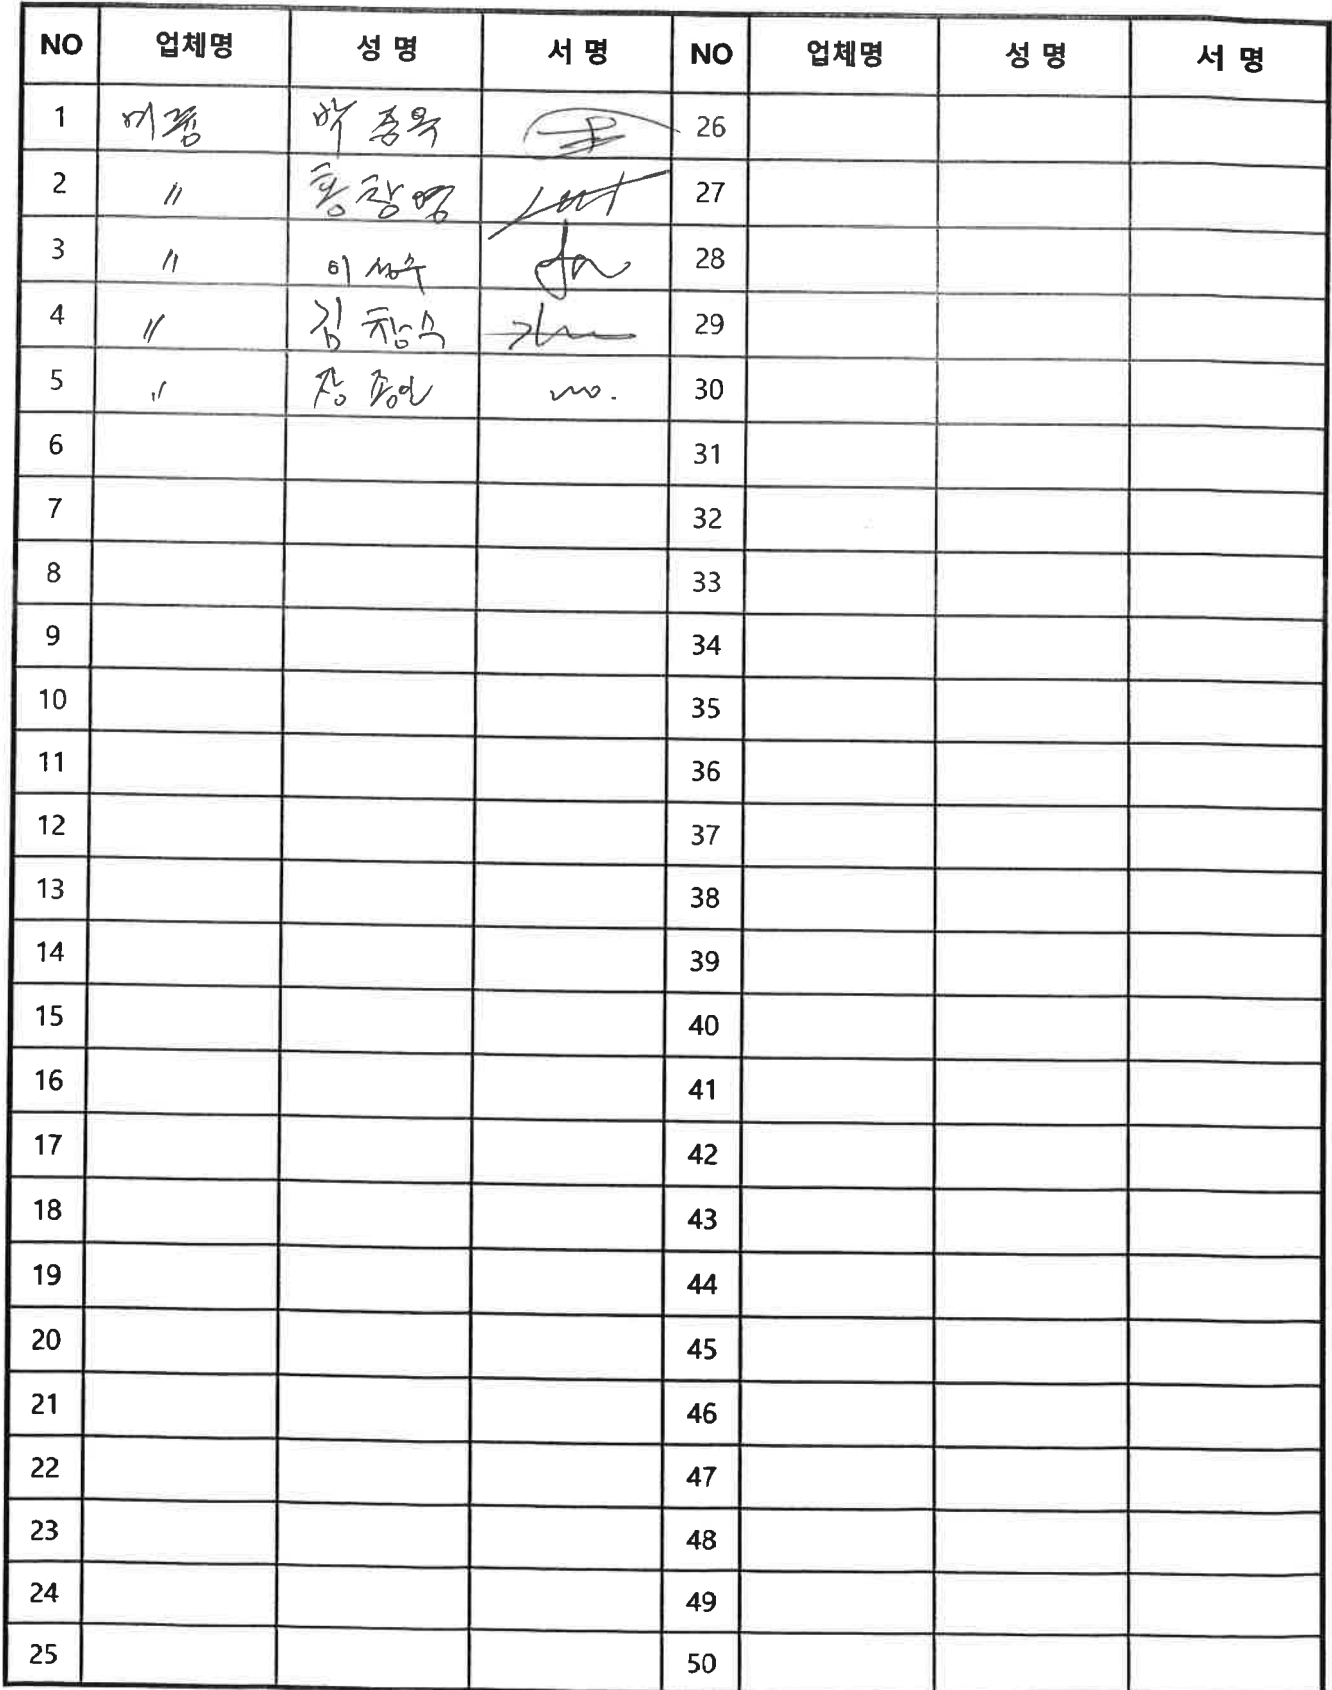 NO 업체명 성 명 서 명 NO 업체명 성 명 서 명
1 박종욱 26
2 〃 홍창영 27
3 〃 이성수 28
4 〃 김창수 29
5 〃 30
6 31
7 32
8 33
9 34
10 35
11 36
12 37
13 38
14 39
15 40
16 41
17 42
18 43
19 44
20 45
21 46
22 47
23 48
24 49
25 50